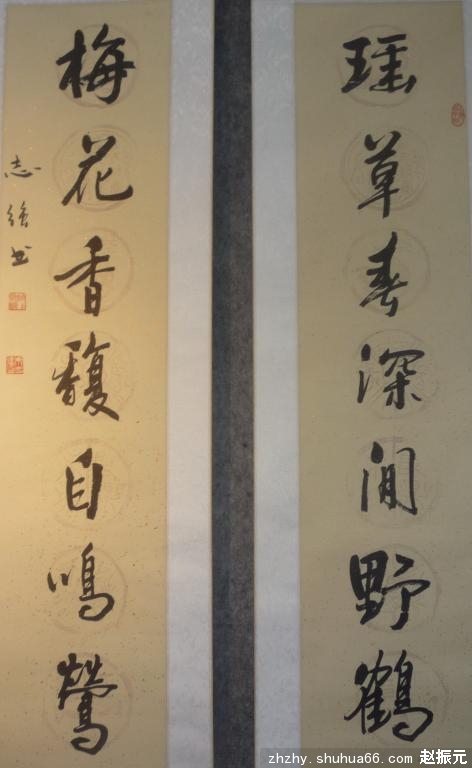 瑶草春深闲野鹤
梅花香馥自鸣莺
志强书
zhzhy.shuhua66.com 赵振元